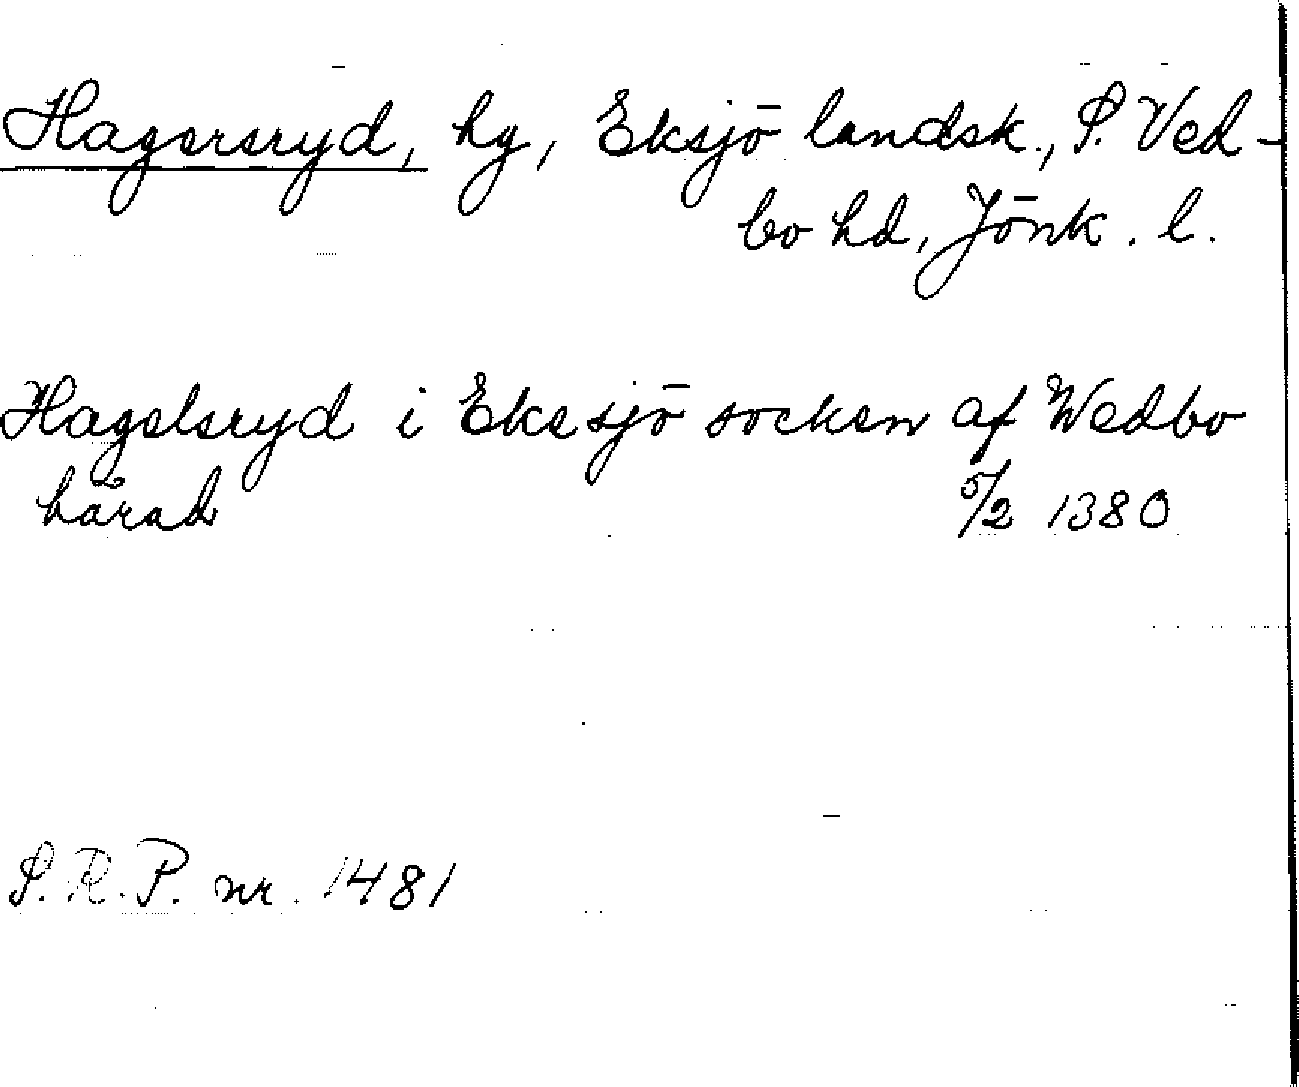 Hagersryd, hg, Eksjö landsk., S. Ved-
bo hd, Jönk. l.
Hagelsryd i Ekesjö socken af Wedbo
härad 5/2 1380
S.R.P. nr. 1481